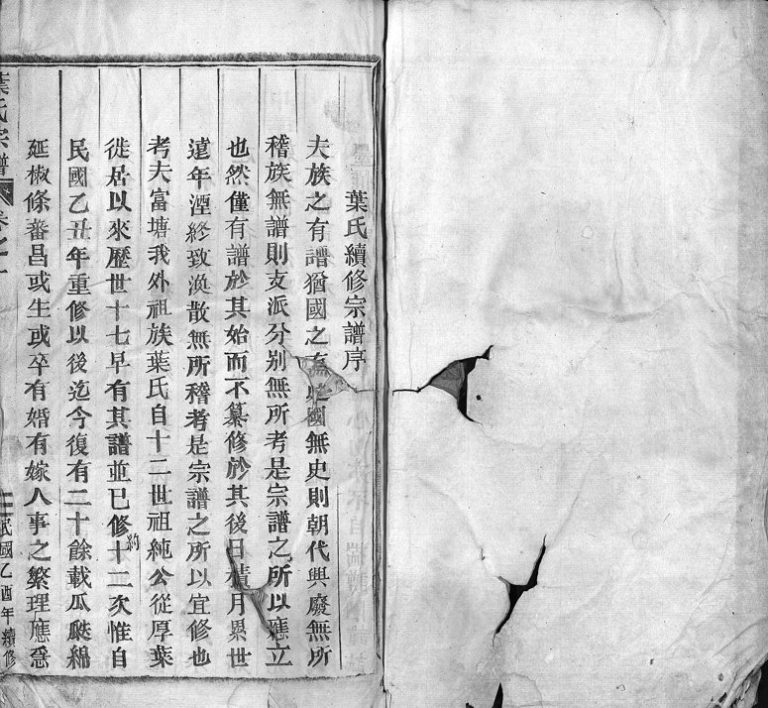 葉氏續修宗譜序
夫族之有譜猶國之有史國無史則朝代興廢無所
稽族無譜則支派分别無所考是宗譜之所以應立
也然僅有譜於其始而不纂修於其後日積月累世
遠年湮終致渙散無所稽考是宗譜之所以宜修也
考夫富塘我外祖族葉氏自十二世祖純公從厚葉
徙居以來歷世十七早有其譜並已修十二次惟自
約
民國乙丑年重修以後迄今復有二十餘載瓜瓞綿
延椒條蕃昌或生或卒有婚有嫁人事之繁理應悉
葉氏宗譜
卷之一
民國乙酉年續修